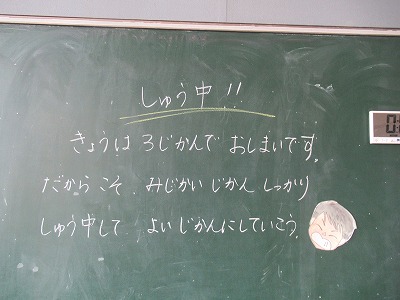 しゅう中!!
きょうは 3じかんで おしまいです。
だからこそ、みじかい じかん しっかり
しゅう中して よい じかんにしていこう。